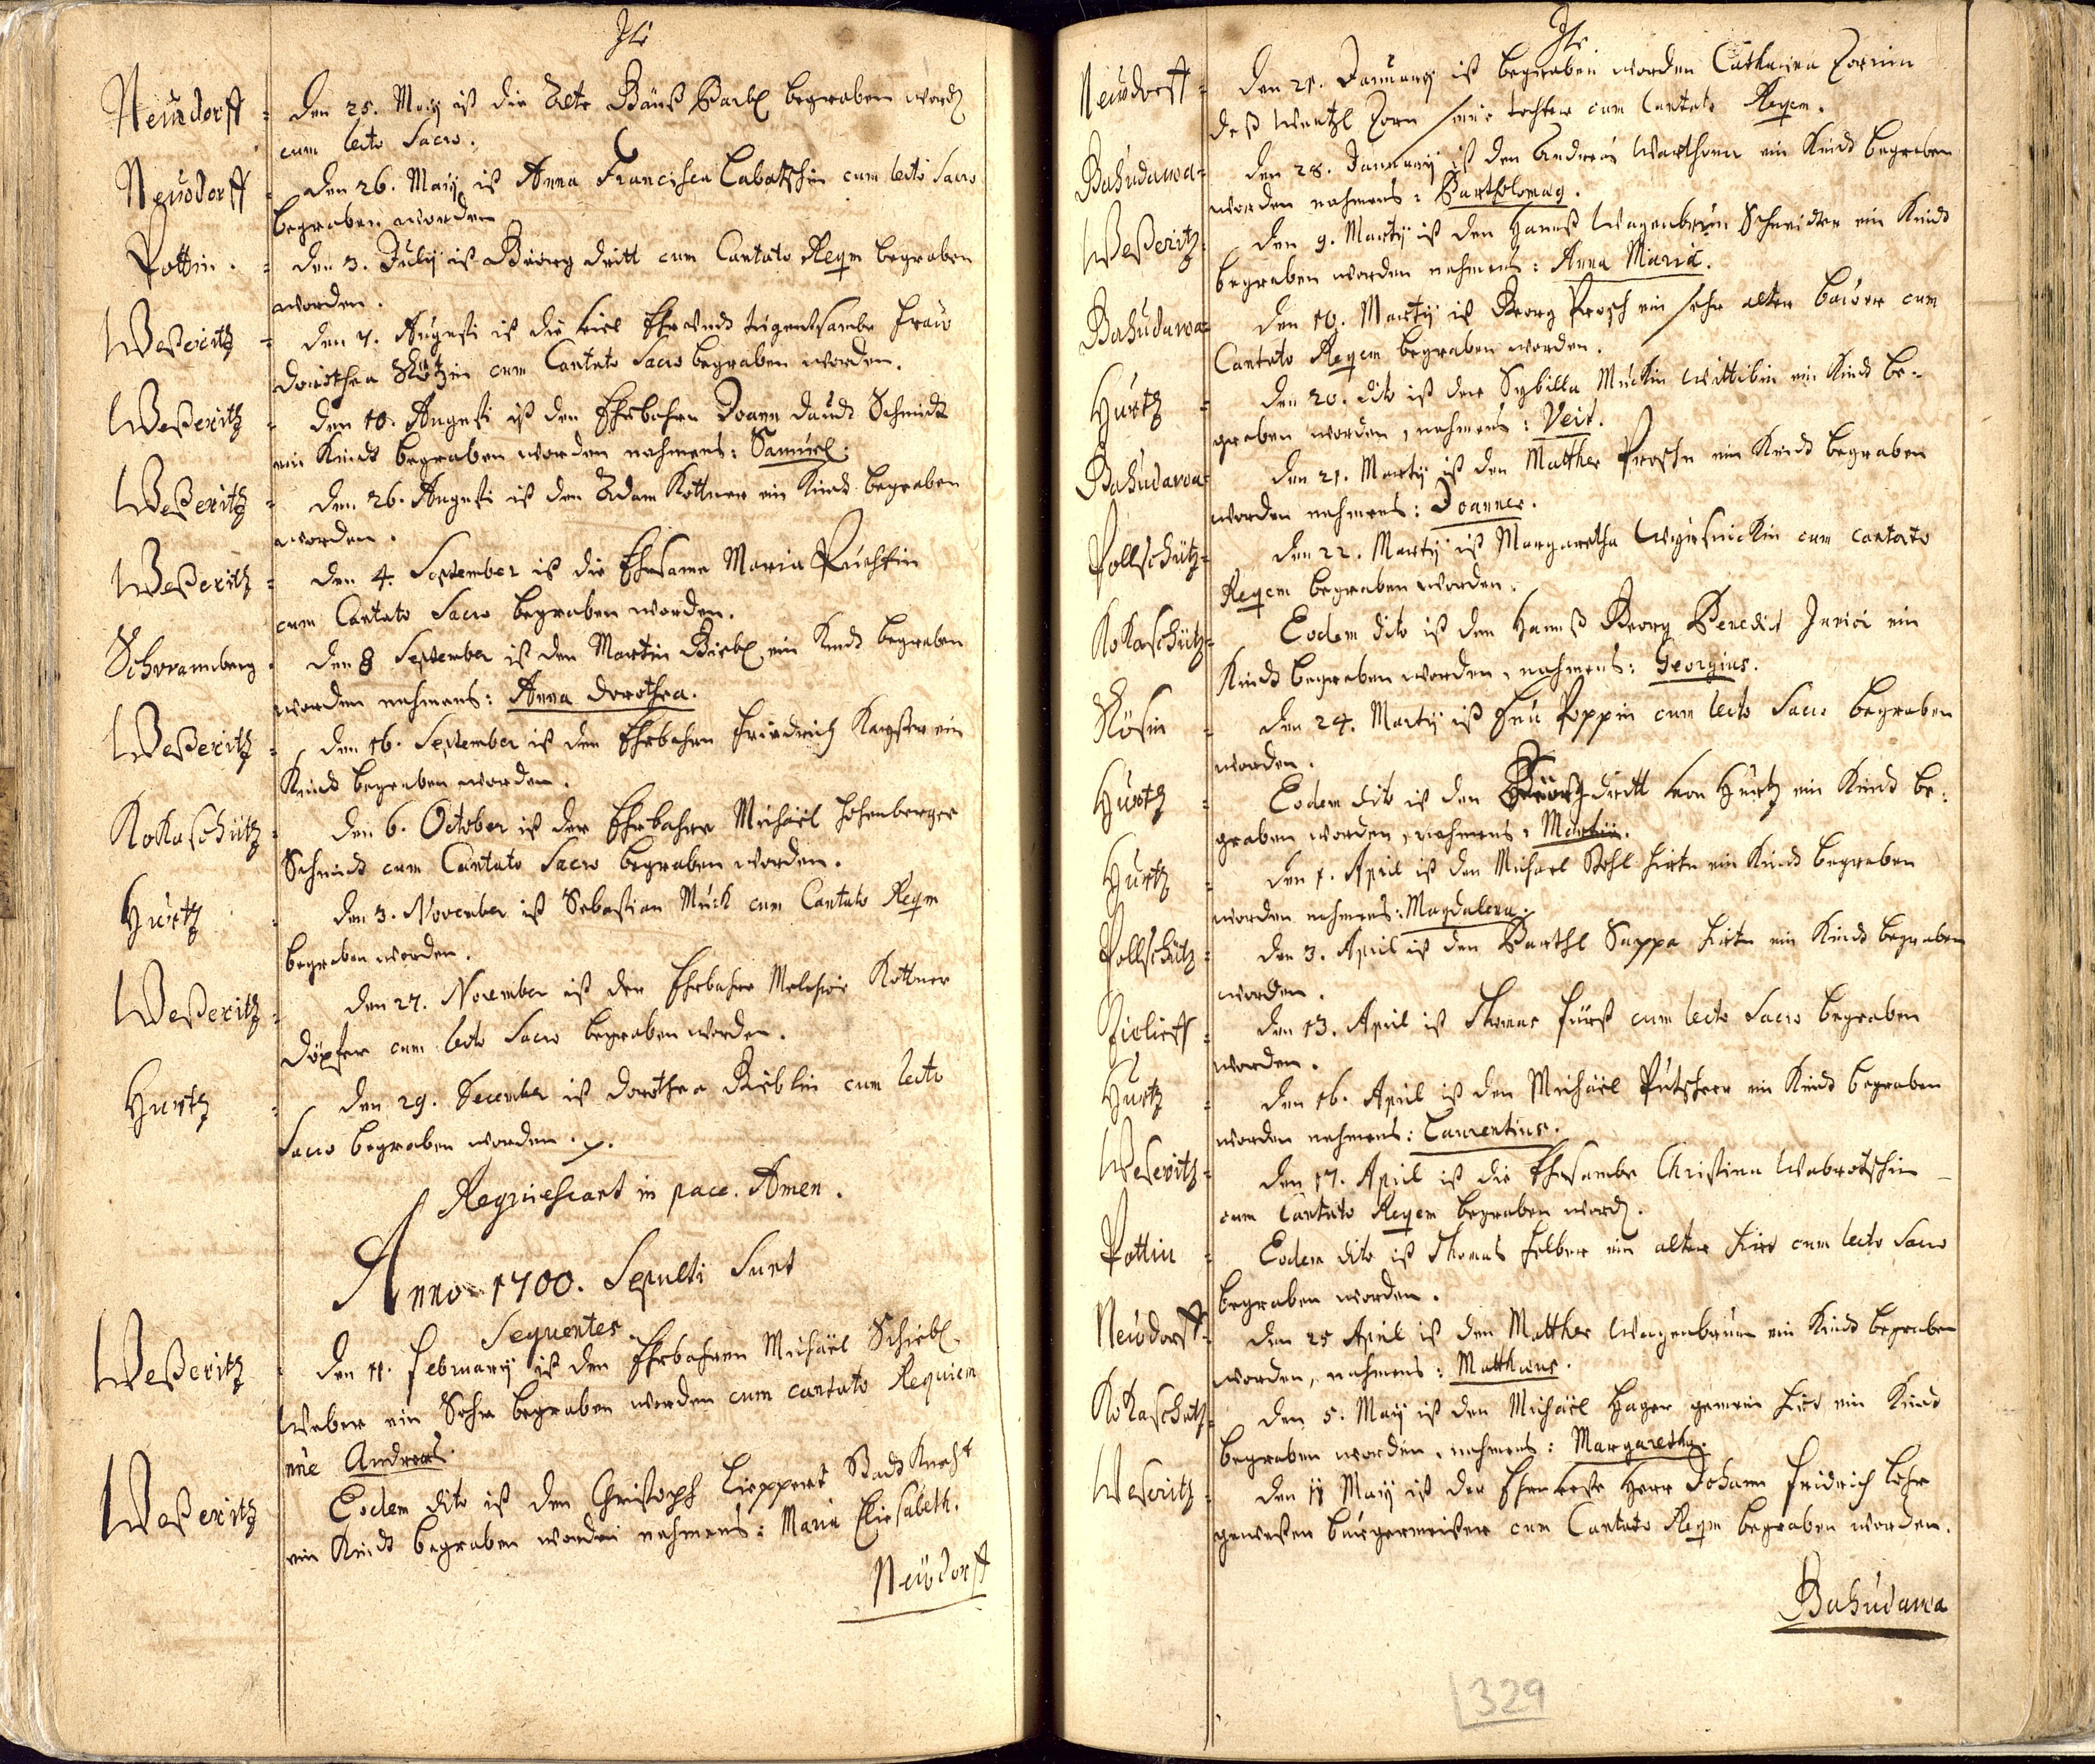 Neudorff = den 25. Maij ist die Alte Bäuß Barbl begraben word
cum lecto Sacro.
Neudorff = den 26. Maij ist Anna Francisca Labatschin cum lecto Sacro
begraben worden
Pottin. = den 3. Julij ist Georg dritt cum Cantato Reqm begraben
worden.
Weßeritz = den 7. Augusti ist die viel Ehr undt tugentsambe Frau
Dorothea cum Cantato Sacro begraben worden.
Weßeritz = den 10. Augusti ist den Ehrbahren Schmidt
ein Kindt begraben worden nahmens: Samuel.
Weßeritz = den 26. Augusti ist den Adam Kottner ein Kindt begraben
worden.
Weßeritz = den 4. September ist die Ehrsame Maria
cum Cantato Sacro begraben worden.
Schwamberg = den 8 September ist den Martin ein Kindt begraben
worden nahmens: Anna Dorothea.
Weßeritz = den 16. September ist den Ehrbahren Friedrich ein
Kindt begraben worden.
Kokaschütz = den 6. October ist der Ehrbahre Michäel Hohenberger
Schmidt cum Cantato Sacro begraben worden.
Hurtz = den 3. November ist Sebastian Muck cum Cantato Reqm
begraben worden.
Weßeritz = den 27. November ist der Ehrbahre Melchior Kottner
Döpfer cum lecto Sacro begraben worden.
Hurtz = den 29. December ist Dorothea cum lecto
Sacro begraben worden.
Requiescant in pace. Amen.
Anno 1700. Sepulti Sunt
Sequentes
Weßeritz = den 11. februarij ist den Ehrbahren Michäel Schiebl
Weber ein Sohn begraben worden cum cantato Requiem
Andreas.
Weßeritz Eodem dito ist den Christoph Lieppert Stadt Knecht
ein Kindt begraben worden nahmens: Maria Eliesabeth.
Neudorff
Neudorff = den 21. Januarij ist begraben worden Catharina Zornin
deß Wentzl Zorn seine tochter cum Cantato Reqem.
Bahudawa = den 28. Januarij ist den Andreas ein Kindt begraben
worden nahmens: Bartholomæg.
Weßeritz = den 9. Martij ist den Hannß Wagenbrun Schneider ein Kindt
begraben worden nahmens: Anna Maria.
Bahudawa = den 10. Martij ist Georg Prosch ein sehr alter bauer cum
Cantato Reqem begraben worden.
Hurtz = den 20. dito ist der Sybilla Muckin Wittibin ein Kindt be=
graben worden, nahmens: Veit.
Bahudawa = den 21. Martij ist den Matthes ein Kindt begraben
worden nahmens: Joannes.
Pollschütz = den 22. Martij ist Margaretha cum cantato
Reqem begraben worden.
Kokaschütz = Eodem dito ist den Hannß Georg Benedict ein
Kindt begraben worden, nahmens: Georgius.
Kösin = den 24. Martij ist Eva Poppin cum lecto Sacro begraben
worden.
Hurtz = Eodem dito ist den Georg dritt von Hurtz ein Kindt be=
graben worden, nahmens: Martin.
Hurtz = den 1. April ist den Michael hirten ein Kindt begraben
worden nahmens: Magdalena.
Pollschütz = den 3. April ist den Barthl Sappa hirten ein Kindt begraben
worden.
= den 13. April ist Thomas Fürst cum lecto Sacro begraben
worden.
Hurtz = den 16. April ist den Michäel ein Kindt begraben
worden nahmens: Laurentius.
Weseritz = den 17. April ist die Ehrsambe Christina Wabrotschin
cum Cantato Reqem begraben word.
Pottin = Eodem dito ist Thomas Felber ein alter hirt cum lecto Sacro
begraben worden.
Neudorff = den 25 April ist den Matthes Wagenbrunn ein Kindt begraben
worden, nahmens: Mattheus.
Kokaschutz = den 5. Maij ist den Michäel Hager gemein hirt ein Kindt
begraben worden, nahmens: Margaretha.
Weseritz = den 11 Maij ist der Ehrnveste Herr Johann Fridrich
geweßen burgermeister cum Cantato Reqm begraben worden.
Bahudawa
329